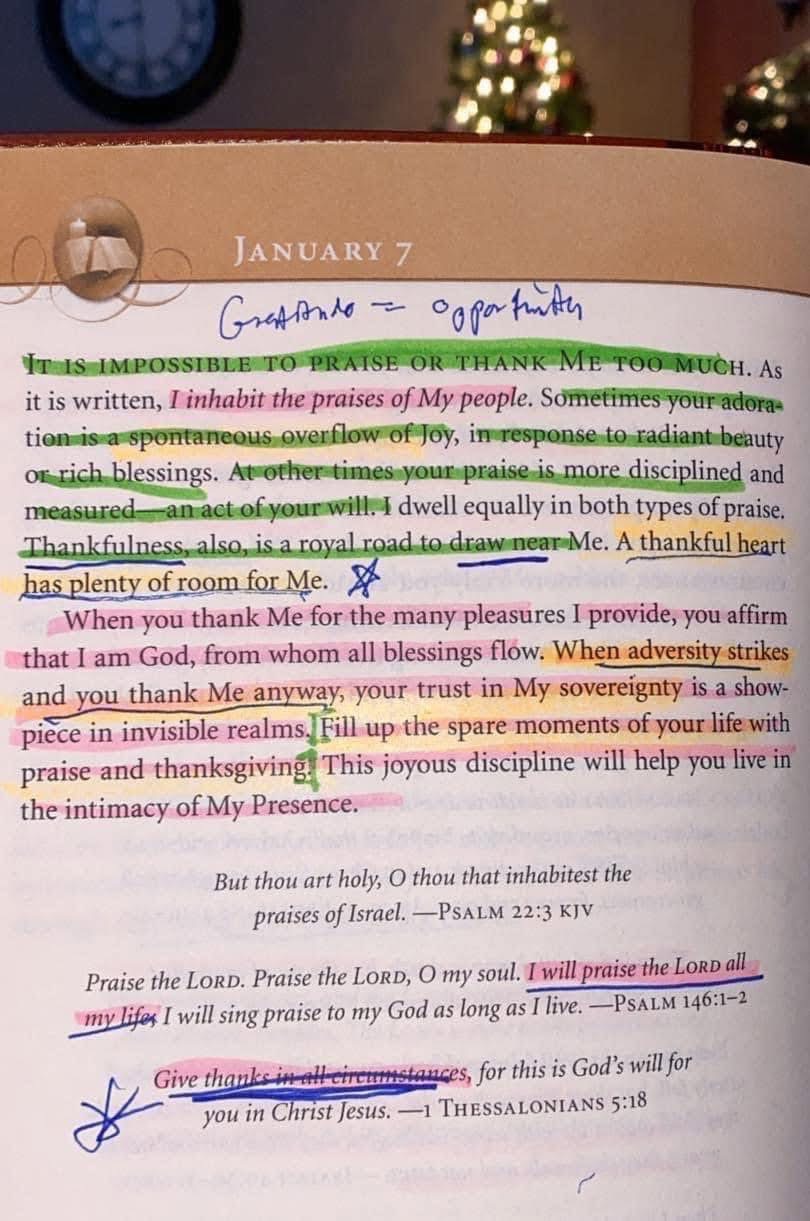 January 7
= opportunity
It is impossible to praise or thank Me too much. As
it is written, I inhabit the praises of My people. Sometimes your adora-
tion is a spontaneous overflow of Joy, in response to radiant beauty
or rich blessings. At other times your praise is more disciplined and
measured—an act of your will. I dwell equally in both types of praise.
Thankfulness, also, is a royal road to draw near Me. A thankful heart
has plenty of room for Me.
When you thank Me for the many pleasures I provide, you affirm
that I am God, from whom all blessings flow. When adversity strikes
and you thank Me anyway, your trust in My sovereignty is a show-
piece in invisible realms. Fill up the spare moments of your life with
praise and thanksgiving. This joyous discipline will help you live in
the intimacy of My Presence.
But thou art holy, O thou that inhabitest the
praises of Israel. —Psalm 22:3 KJV
Praise the LORD. Praise the LORD, O my soul. I will praise the LORD all
my life; I will sing praise to my God as long as I live. —Psalm 146:1–2
Give thanks in all circumstances, for this is God's will for
you in Christ Jesus. —1 Thessalonians 5:18